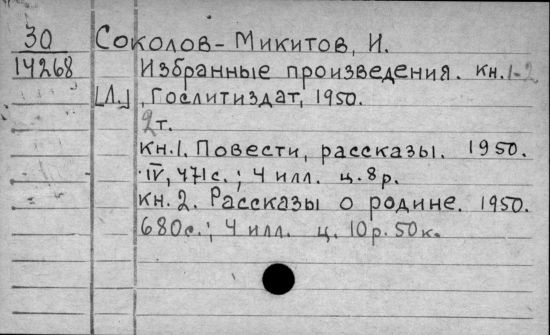 30 Соколов-Микитов, И.
14268 Избранные произведения. кн. 1-2
[Л.], Гослитиздат, 1950.
2т.
кн. 1. Повести, рассказы. 1950.
IV, 471с.; 4 илл. ц. 8р.
кн. 2. Рассказы о родине. 1950.
680с.; 4 илл. ц. 10р. 50к.